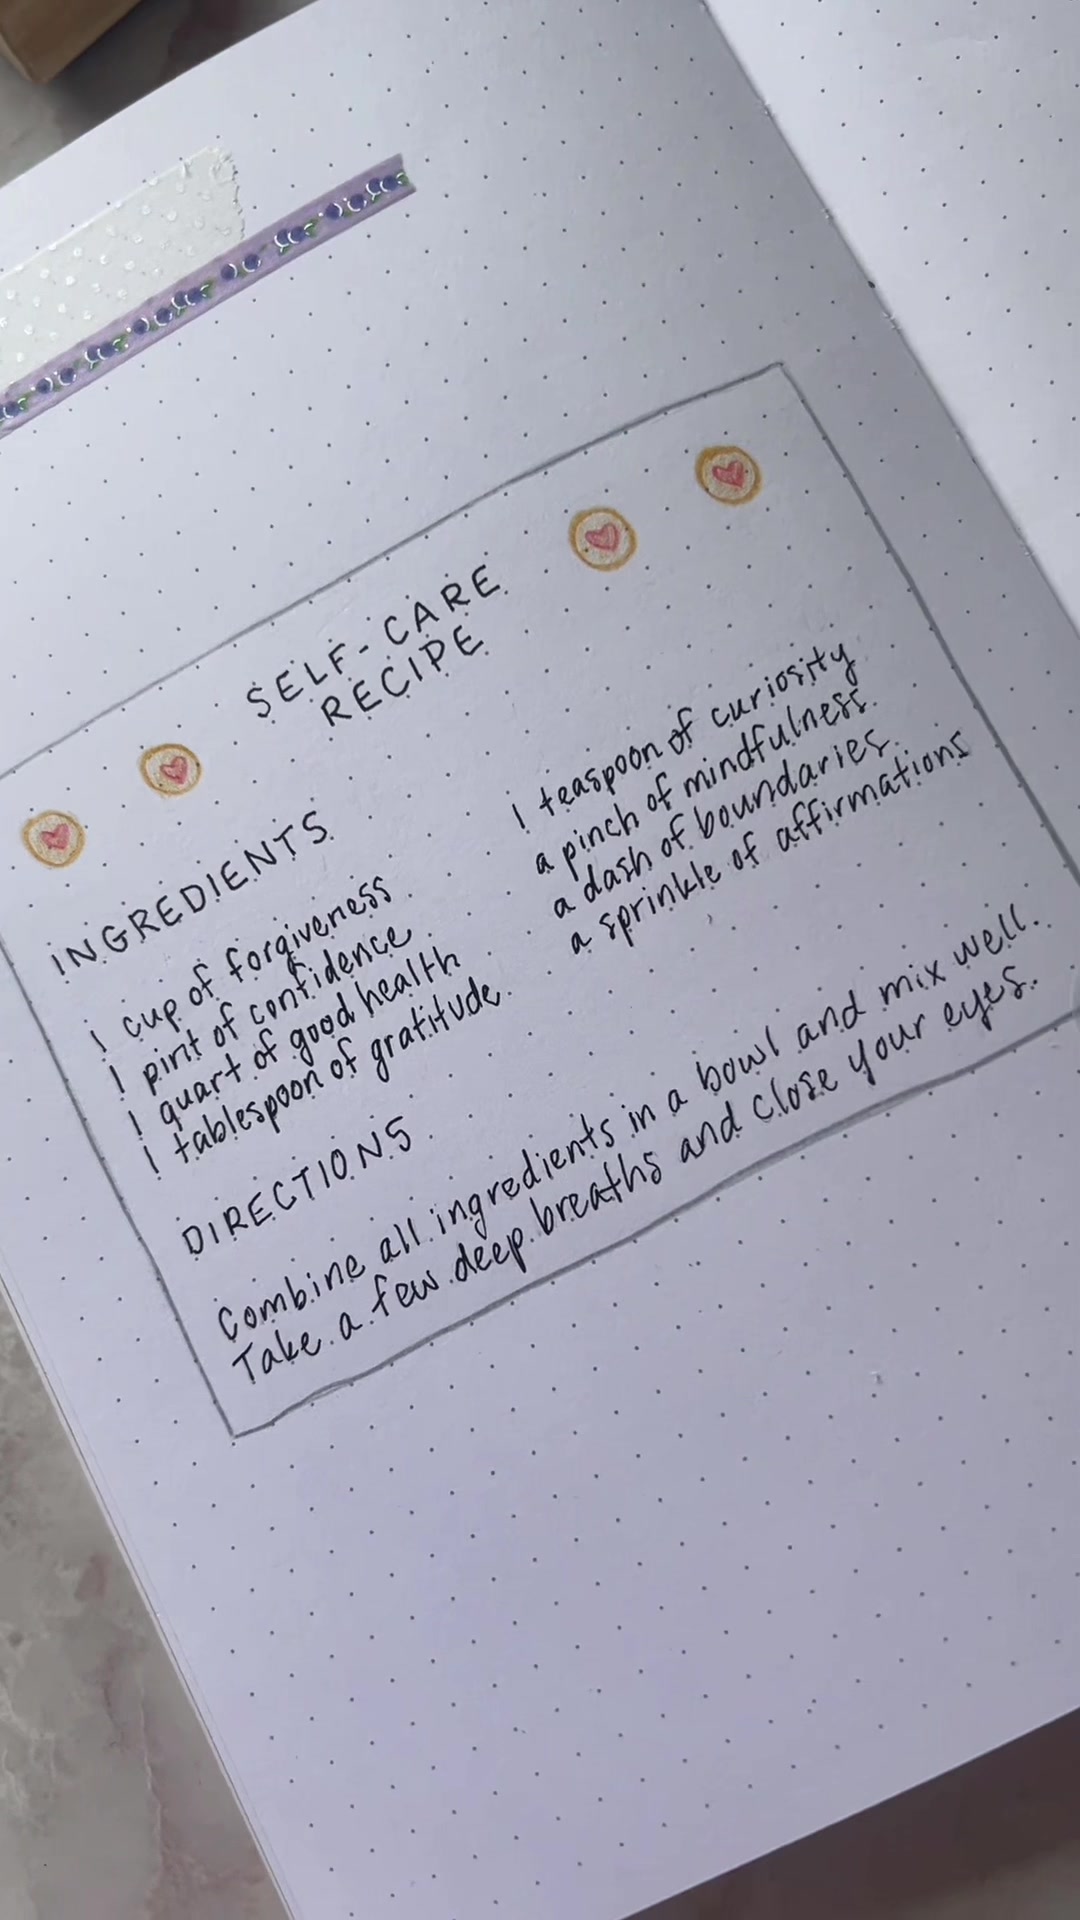 SELF-CARE
RECIPE
INGREDIENTS
1 cup of forgiveness
1 pint of confidence
1 quart of good health
1 tablespoon of gratitude
1 teaspoon of curiosity
a pinch of mindfulness
a dash of boundaries
a sprinkle of affirmations
DIRECTIONS
Combine all ingredients in a bowl and mix well.
Take a few deep breaths and close your eyes.